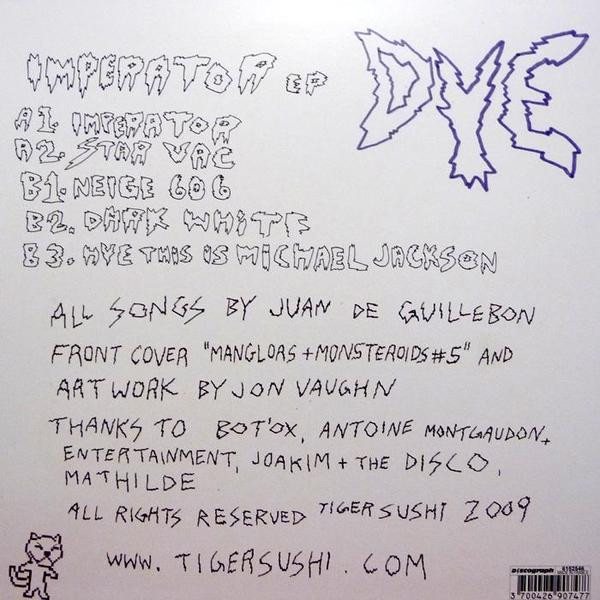 IMPERATOR EP
DYE
A1. IMPERATOR
A2. STAR VAC
B1. NEIGE 606
B2. DARK WHITE
B3. HYE THIS IS MICHAEL JACKSON
ALL SONGS BY JUAN DE GUILLEBON
FRONT COVER "MANGLORS + MONSTEROIDS #5" AND
ARTWORK BY JON VAUGHN
THANKS TO BOT'OX, ANTOINE MONTGAUDON,
ENTERTAINMENT, JOAKIM + THE DISCO,
MATHILDE
ALL RIGHTS RESERVED TIGERSUSHI 2009
WWW. TIGERSUSHI. COM
Discograph 6152546
3 700426 907477